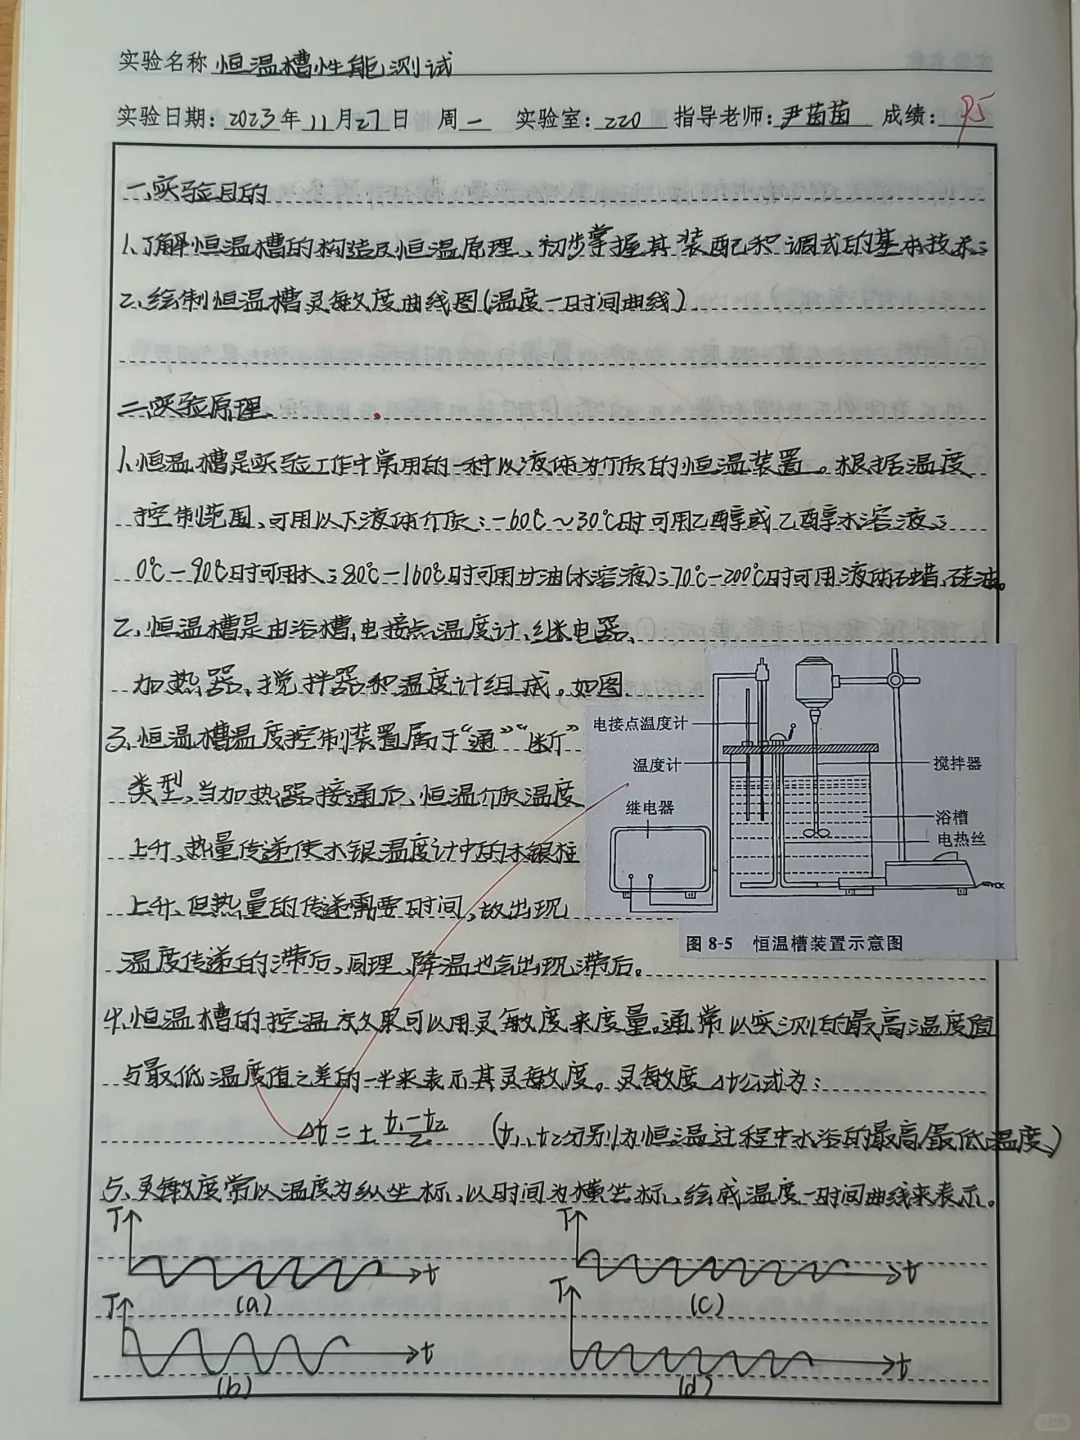 实验名称 恒温槽性能测试
实验日期: 2023年11月27日 周一 实验室: 220 指导老师: 尹茵茵 成绩: 95
一、实验目的
1、了解恒温槽的构造及恒温原理、初步掌握其装配和调试的基本技术;
2、绘制恒温槽灵敏度曲线图(温度—时间曲线)
二、实验原理
1、恒温槽是实验工作中常用的一种以液体为介质的恒温装置。根据温度
控制范围、可用以下液体介质:-60℃~30℃时可用乙醇或乙醇水溶液;
0℃-90℃时可用水;80℃-160℃时可用甘油(水溶液);70℃-200℃时可用液体石蜡、硅油。
2、恒温槽是由浴槽、电接点温度计、继电器、
加热器、搅拌器和温度计组成。如图
3、恒温槽温度控制装置属于“通”“断”
类型,当加热器接通后,恒温介质温度
上升、热量传递使水银温度计中的水银柱
上升、但热量的传递需要时间,故出现
温度传递的滞后,同理、降温也会出现滞后。
电接点温度计
温度计
继电器
搅拌器
浴槽
电热丝
图 8-5 恒温槽装置示意图
4、恒温槽的控温效果可以用灵敏度来度量,通常以实测的最高温度值
与最低温度值之差的一半来表示其灵敏度。灵敏度Δt公式为:
Δt = ± t₁-t₂/2 (t₁、t₂分别为恒温过程中水浴的最高、最低温度)
5、灵敏度常以温度为纵坐标、以时间为横坐标、绘成温度—时间曲线来表示。
T t (a)
T t (c)
T t (b)
T t (d)